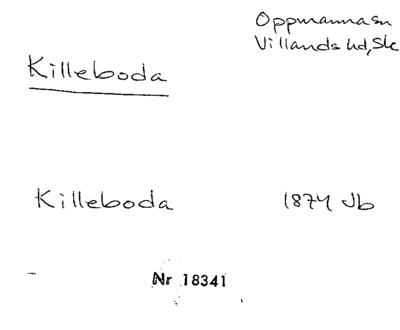 Oppmanna sn
Villands hd, Sk
Killeboda
Killeboda 1874 Jb
Nr 18341